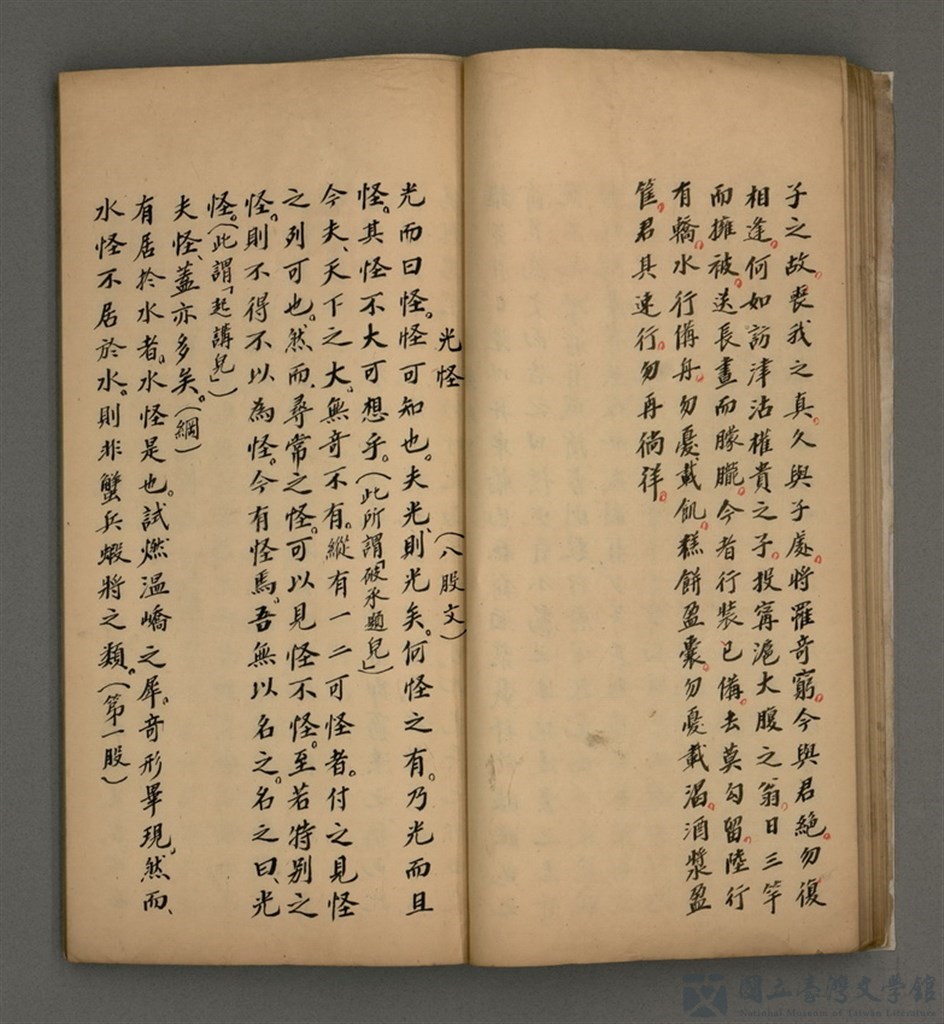 子之故。喪我之真。久與子處。將罹奇窮。今與君絕。勿復
相逢。何如訪津沽權貴之子。投甯滬大腹之翁。日三竿
而擁被。送長晝而朦朧。今者行裝已備。去莫勾留。陸行
有轎。水行備舟。勿憂載飢。糕餅盈囊。勿憂載渴。酒漿盈
筐。君其速行。勿再徜徉。
光怪
（八股文）
光而曰怪。怪可知也。夫光、則光矣。何怪之有。乃光而且
怪。其怪不大可想乎。（此所謂「破承題兒」）
今夫、天下之大。無奇不有。縱有一二可怪者。付之見怪
之列可也。然而、尋常之怪。可以見怪不怪。至若特別之
怪。則不得不以為怪。今有怪焉。吾無以名之。名之曰、光
怪。（此謂「起講兒」）
夫怪、蓋亦多矣。（綱）
有居於水者。水怪是也。試燃溫嶠之犀。奇形畢現。然而、
水怪不居於水。則非蟹兵蝦將之類。（第一股）
國立臺灣文學館
National Museum of Taiwan Literature